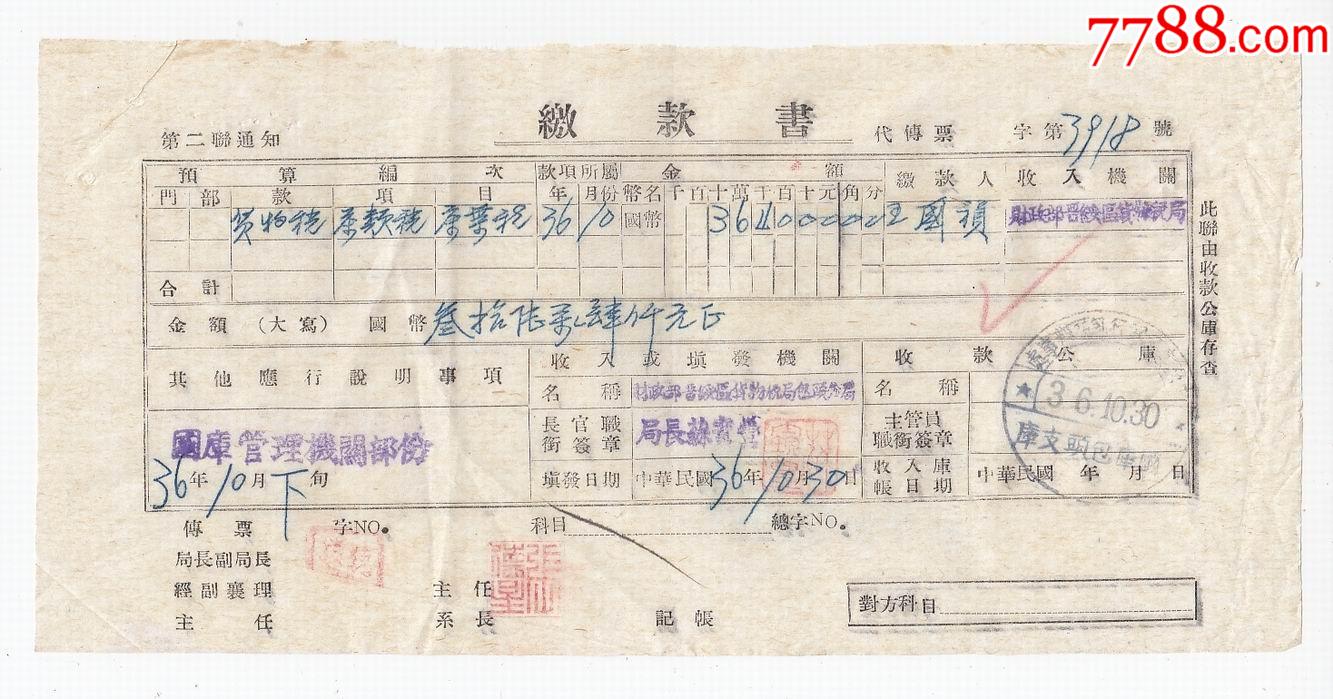 7788.com
繳款書
第二聯通知
代傳票 字第3918號
預算編次 款項所屬 金額 繳款人 收入機關
門 部 款 項 目 年 月份 幣名 千百十萬千百十元角分
貨物稅 茶類稅 茶葉稅 36 10 國幣 36400000 王國禎 財政部晉綏區貨物稅局
合計
金額(大寫)國幣 叁拾陆萬肆仟元正
其他應行說明事項 收入或填發機關 收款公庫
名稱 財政部晉綏區貨物稅局包頭分局 名稱
長官職銜簽章 局長 主管員職銜簽章
國庫管理機關部份
36年10月下旬
填發日期 中華民國36年10月30日 收入庫帳日期 中華民國 年 月 日
36.10.30
包頭支庫
傳票 字NO. 科目 總字NO.
局長副局長
經副襄理 主任
主任 系長 記帳
對方科目
此聯由收款公庫存查